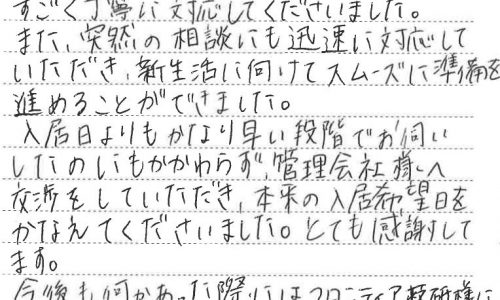 すごく丁寧に対応してくださいました。
また、突然の相談にも迅速に対応して
いただき、新生活に向けてスムーズに準備を
進めることができました。
入居日よりもかなり早い段階でお伺い
したのにもかかわらず、管理会社様へ
交渉をしていただき、本来の入居希望日を
かなえてくださいました。とても感謝して
ます。
今後も何かあった際にはフロンティア技研様に